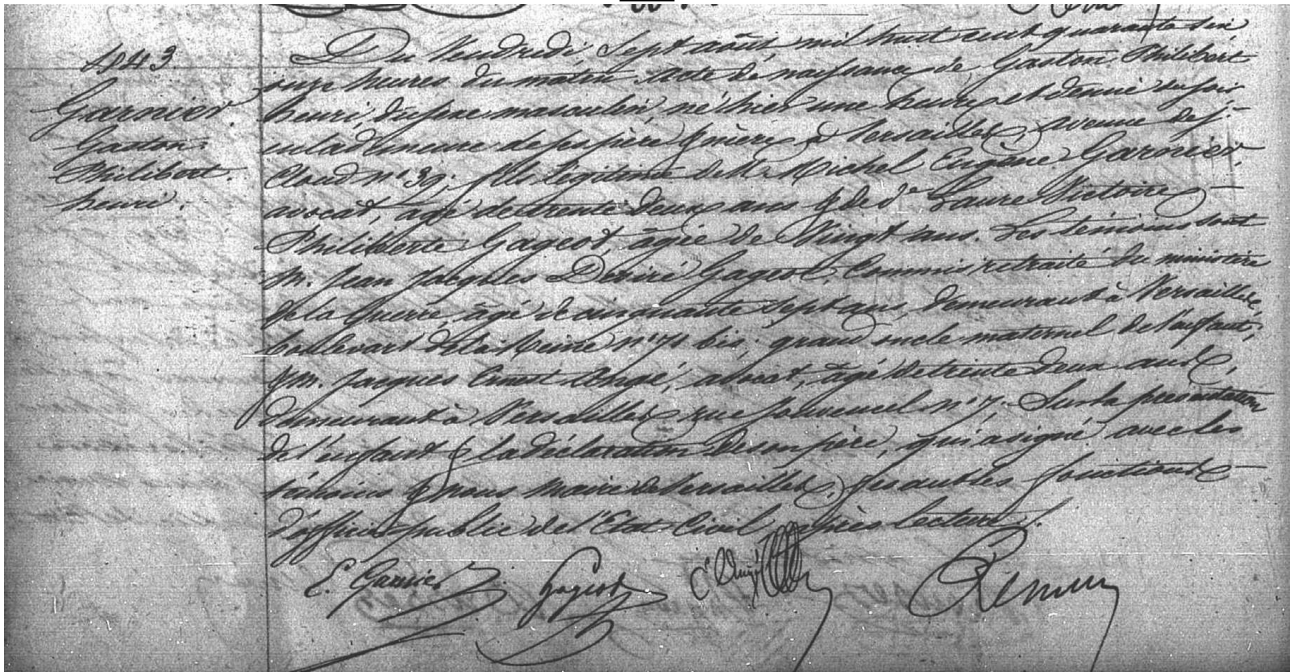 1843
Garnier
Gaston
Philibert
henri.
Du Vendredi, Sept août mil huit cent quarante six
onze heures du matin. Acte de naissance de Gaston Philibert
henri, du sexe masculin, né hier une heure et demie du soir
en la demeure de ses père & mère à Versailles avenue de St
Cloud n° 39; fils légitime de M. Michel Eugène Garnier,
avocat, agé de trente deux ans & de de Laure Victoire
Philiberte Gageot âgée de Vingt ans. Les témoins sont
M. Jean Jacques Désiré Gageot, Commis retraité du ministère
de la Guerre, âgé de cinquante sept ans, demeurant à Versailles,
boulevart de la Reine n° 71 bis, grand oncle maternel de l'enfant,
& M. Jacques Ernest Angé, avocat, âgé de trente deux ans,
demeurant à Versailles rue n° 7. Sur la présentation
de l'enfant & la déclaration de son père, qui a signé avec les
témoins & nous maire de Versailles, fonctions
d'officier public de l'Etat Civil, après lecture.
E. Garnier Gageot E. Angé Rémilly